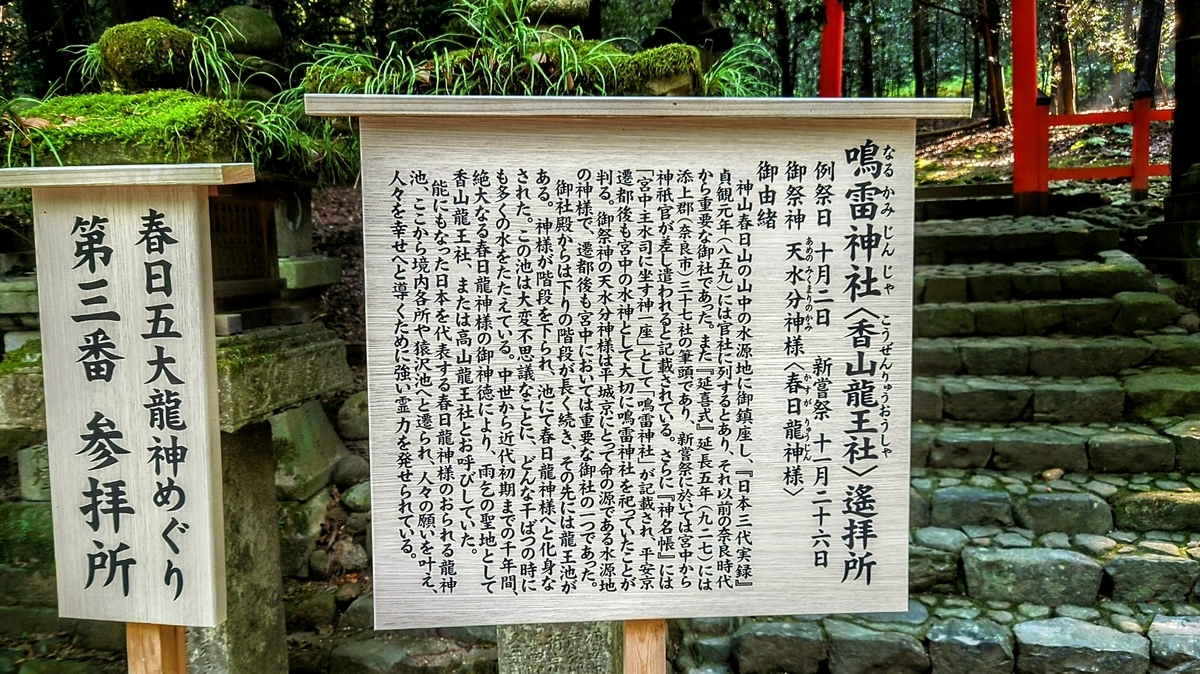 鳴雷神社〈香山龍王社〉遙拝所
なるかみじんじゃ
こうぜんりゅうおうしゃ
例祭日 十月二日 新嘗祭 十一月二十六日
御祭神 天水分神様〈春日龍神様〉
あめのみくまりのかみ
かすが りゅうじん
御由緒
神山春日山の山中の水源地に御鎮座し、『日本三代実録』
貞観元年（八五九）には官社に列するとあり、それ以前の奈良時代
から重要な御社であった。また『延喜式』延長五年（九二七）には
添上郡（奈良市）三十七社の筆頭であり、新嘗祭に於いては宮中から
神祇官が差し遣われると記載されている。さらに『神名帳』には
「宮中主水司に坐す神一座」として「鳴雷神社」が記載され、平安京
遷都後も宮中の水神として大切に鳴雷神社を祀っていたことが
判る。御祭神の天水分神様は平城京にとって命の源である水源地
の神様で、遷都後も宮中においては重要な御社の一つであった。
御社殿からは下りの階段が長く続き、その先には龍王池が
ある。神様が階段を下られ、池にて春日龍神様へと化身な
された。この池は大変不思議なことに、どんな干ばつの時に
も多くの水をたたえている。中世から近代初期までの千年間、
絶大なる春日龍神様の御神徳により、雨乞の聖地として
香山龍王社、または高山龍王社とお呼びしていた。
能にもなった日本を代表する春日龍神様のおられる龍神
池、ここから境内各所や猿沢池へと遷られ、人々の願いを叶え、
人々を幸せへと導くために強い霊力を発せられている。
春日五大龍神めぐり
第三番 参拝所